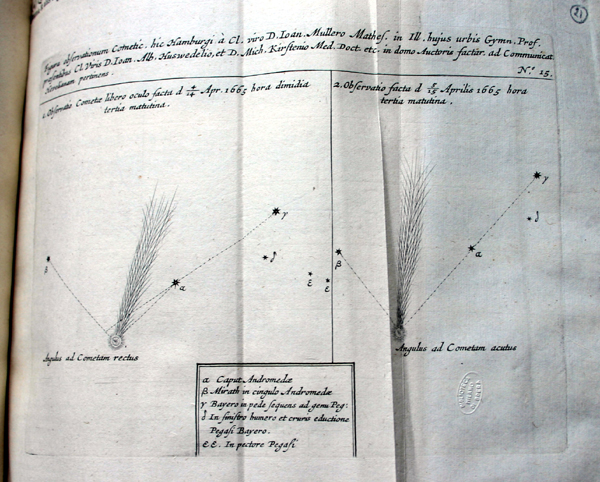 21
Figura observationum Cometic. hic Hamburgi à Cl. viro D. Ioan. Mullero Mathes. in Ill. hujus urbis Gymn. Prof.
præsentibus Cl. Viris D. Ioan. Alb. Huswedelio, et D. Mich. Kirstenio Med. Doct. etc. in domo Auctoris factar. ad Communicat
pertinens.
N.º 15.
1. Observatio Cometæ libero oculo facta d 4/14 Apr. 1665 hora dimidia
tertia matutina.
2. Observatio facta d 5/15 Aprilis 1665 hora
tertia matutina.
γ
γ
δ
β
δ
α
β
α
ε
ε
Angulus ad Cometam rectus
Angulus ad Cometam acutus
α Caput Andromedæ
β Mirath in cingulo Andromedæ
γ Bayero in pede sequens ad genu Peg:
δ In sinistro humero et cruris eductione
Pegasi Bayero.
εε. In pectore Pegasi